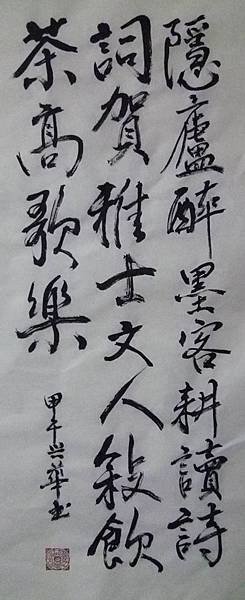 隱廬醉墨客耕讀詩
詞賀雅士文人敍飲
茶高歌樂
甲午興華書